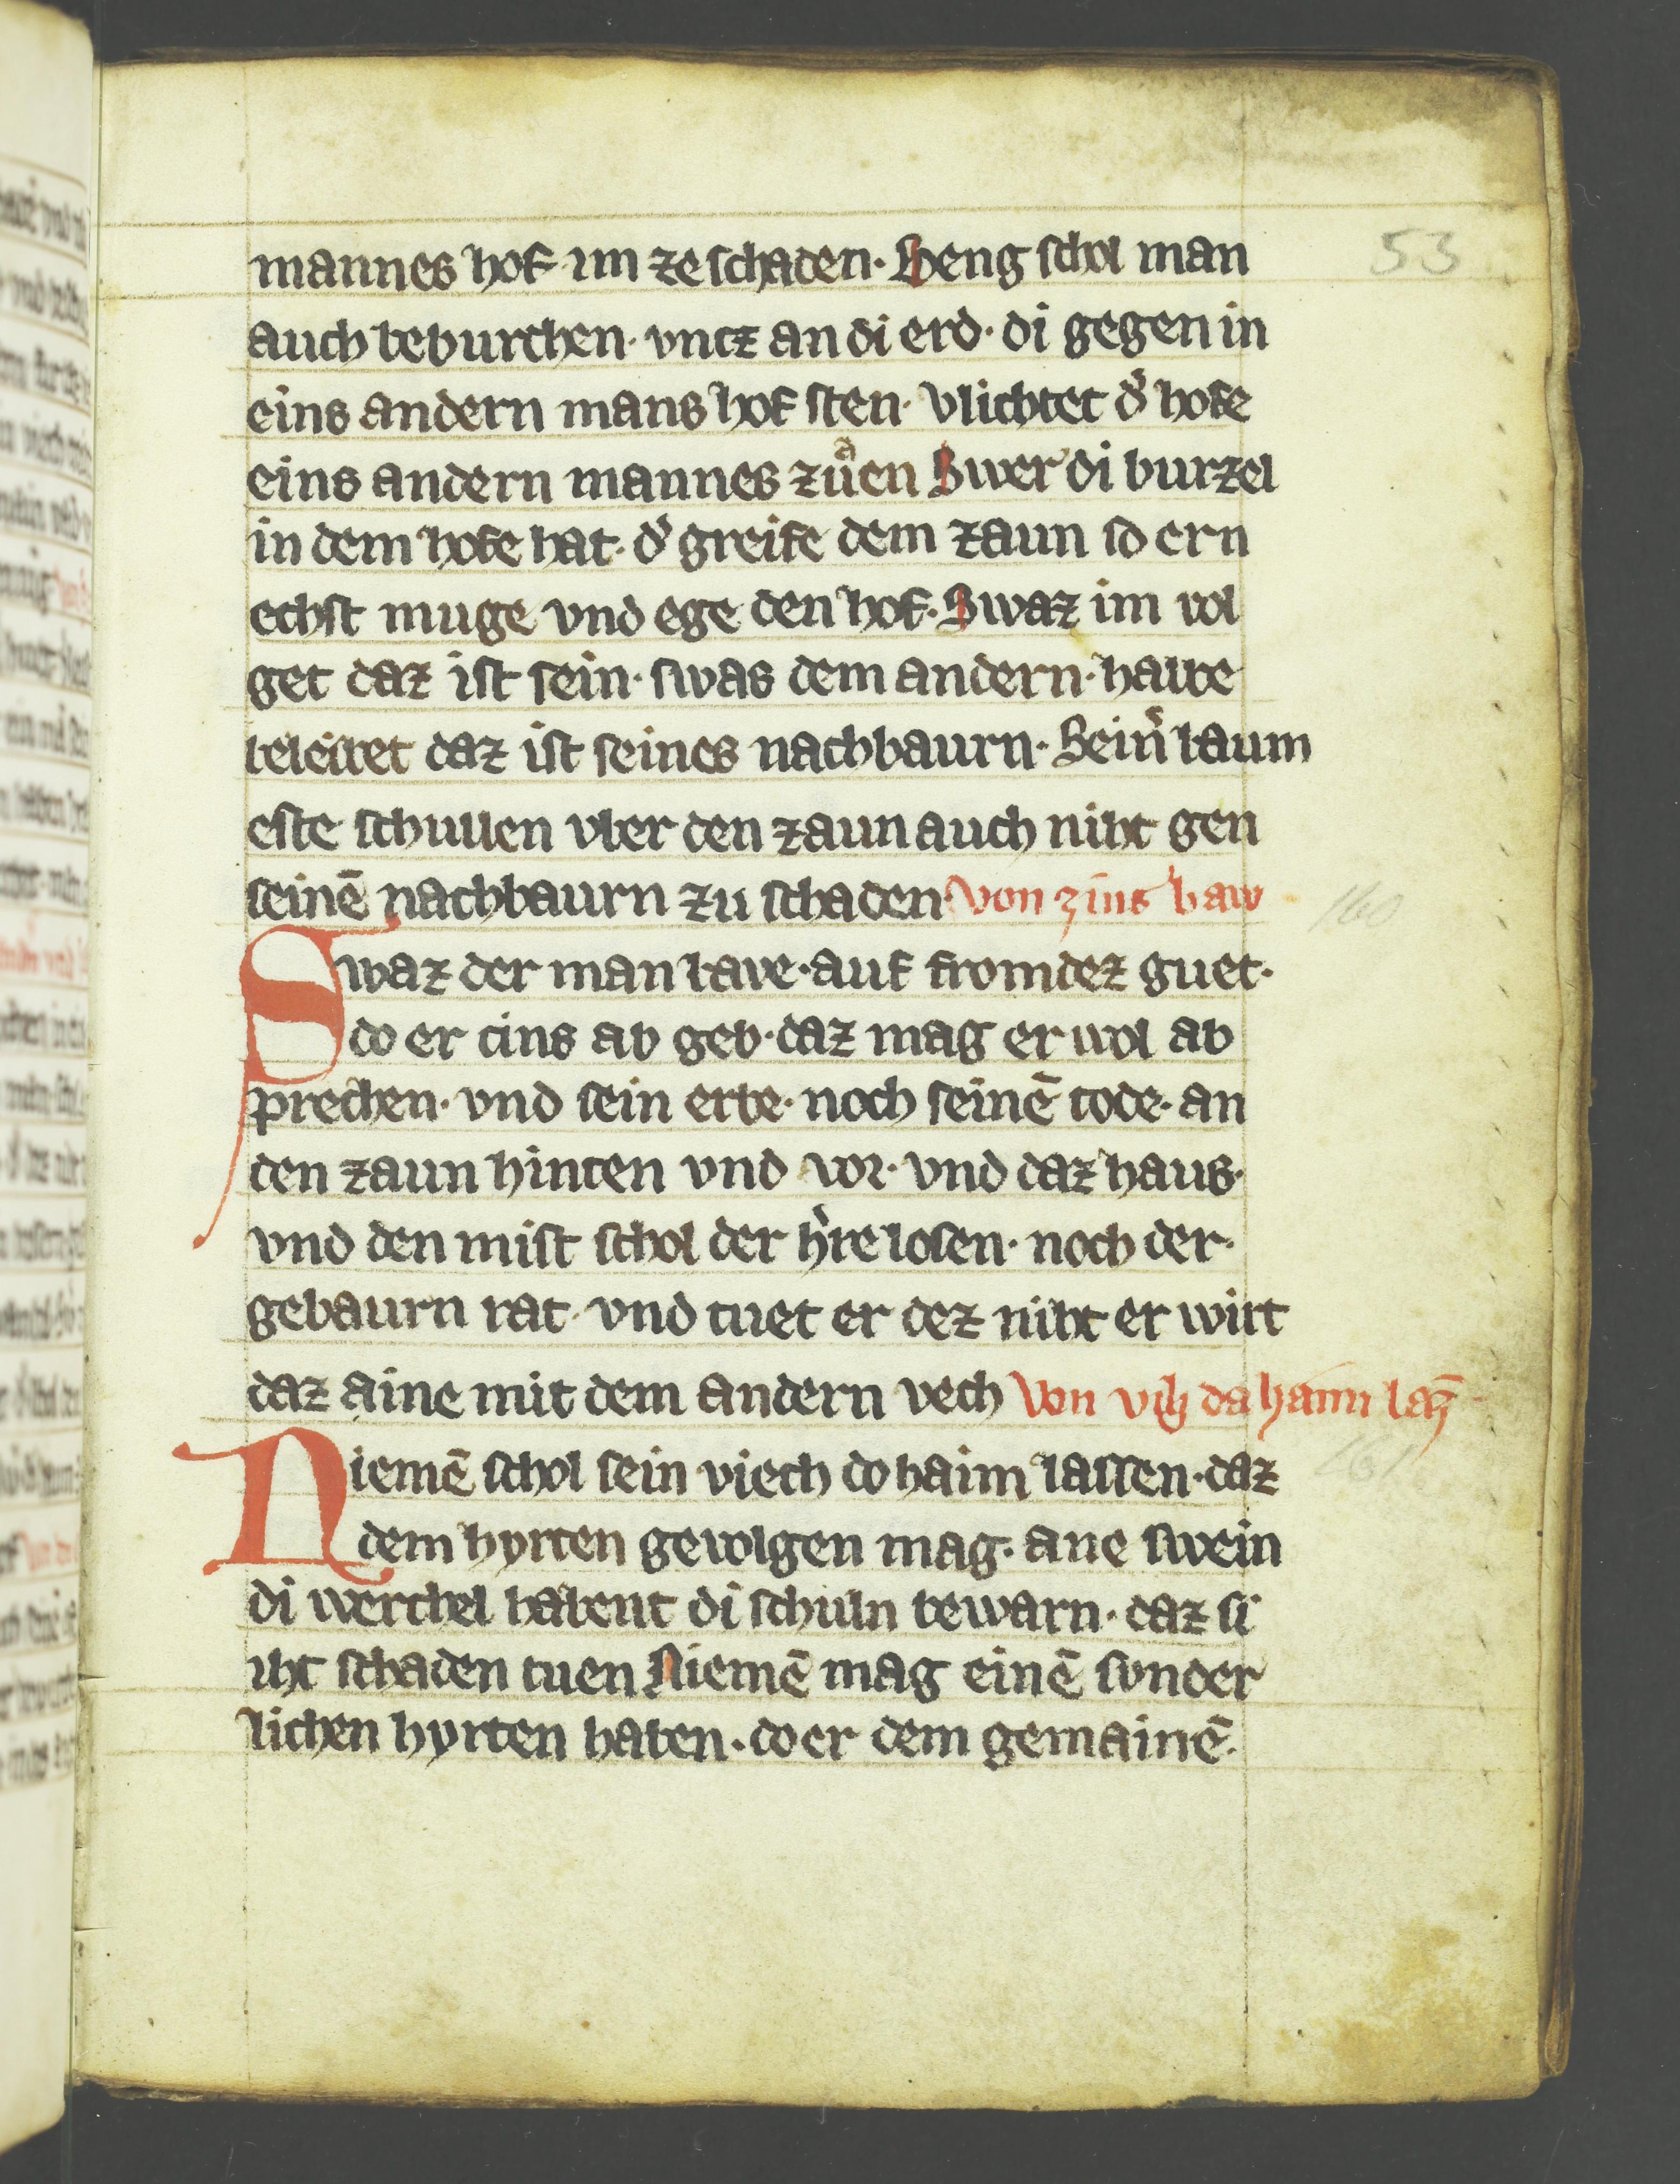 mannes hof im ze schaden· Geng schol man
53
auch beburchen· vntz an di erd· di gegen in
eins andern mans hof sten· Vlichtet d͛ hofe
eins andern mannes zuͤen Swer di burzel
in dem hofe hat· d͛ greife dem zaun so er n
echst muge vnd ege den hof· Swaz im vol
get daz ist sein· swas dem andern· halbe
beleibet daz ist seines nachbaurn· Sein͛ baum
este schullen vber den zaun auch niht gen
seinē nachbaurn zu schaden· von zins baw
160
Swaz der man bawe· auf fromdez guet·
do er cins ab geb· daz mag er wol ab
prechen· vnd sein erbe· noch seinē tode· an
den zaun hinten vnd vor· vnd daz haus·
vnd den mist schol der h͛re losen· noch der·
gebaurn rat· vnd tuet er dez niht er wirt
daz aine mit dem andern vech Von vih da haim laz̄
161
Niemē schol sein viech do haim lassen· daz
dem hyrten gevolgen mag· ane swein
di verchel habent di schuln bewarn· daz si
iht schaden tuen Niemē mag einē sunder
lichen hyrten haben· do er dem gemainē·